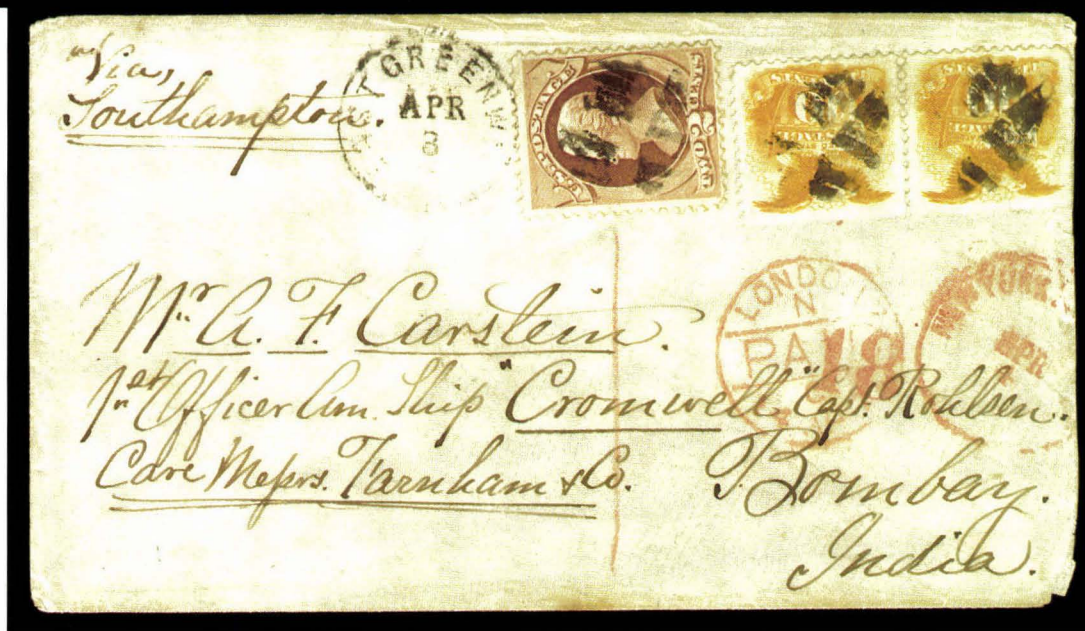 Via,
Southampton.
T GREENW
APR
3
LONDON
N
PAI
18
NEW YORK
APR
Mr. A. F. Carstein.
1st Officer Am. Ship "Cromwell" Capt. Rohlsen.
Care Messrs. Farnham & Co. Bombay.
India.